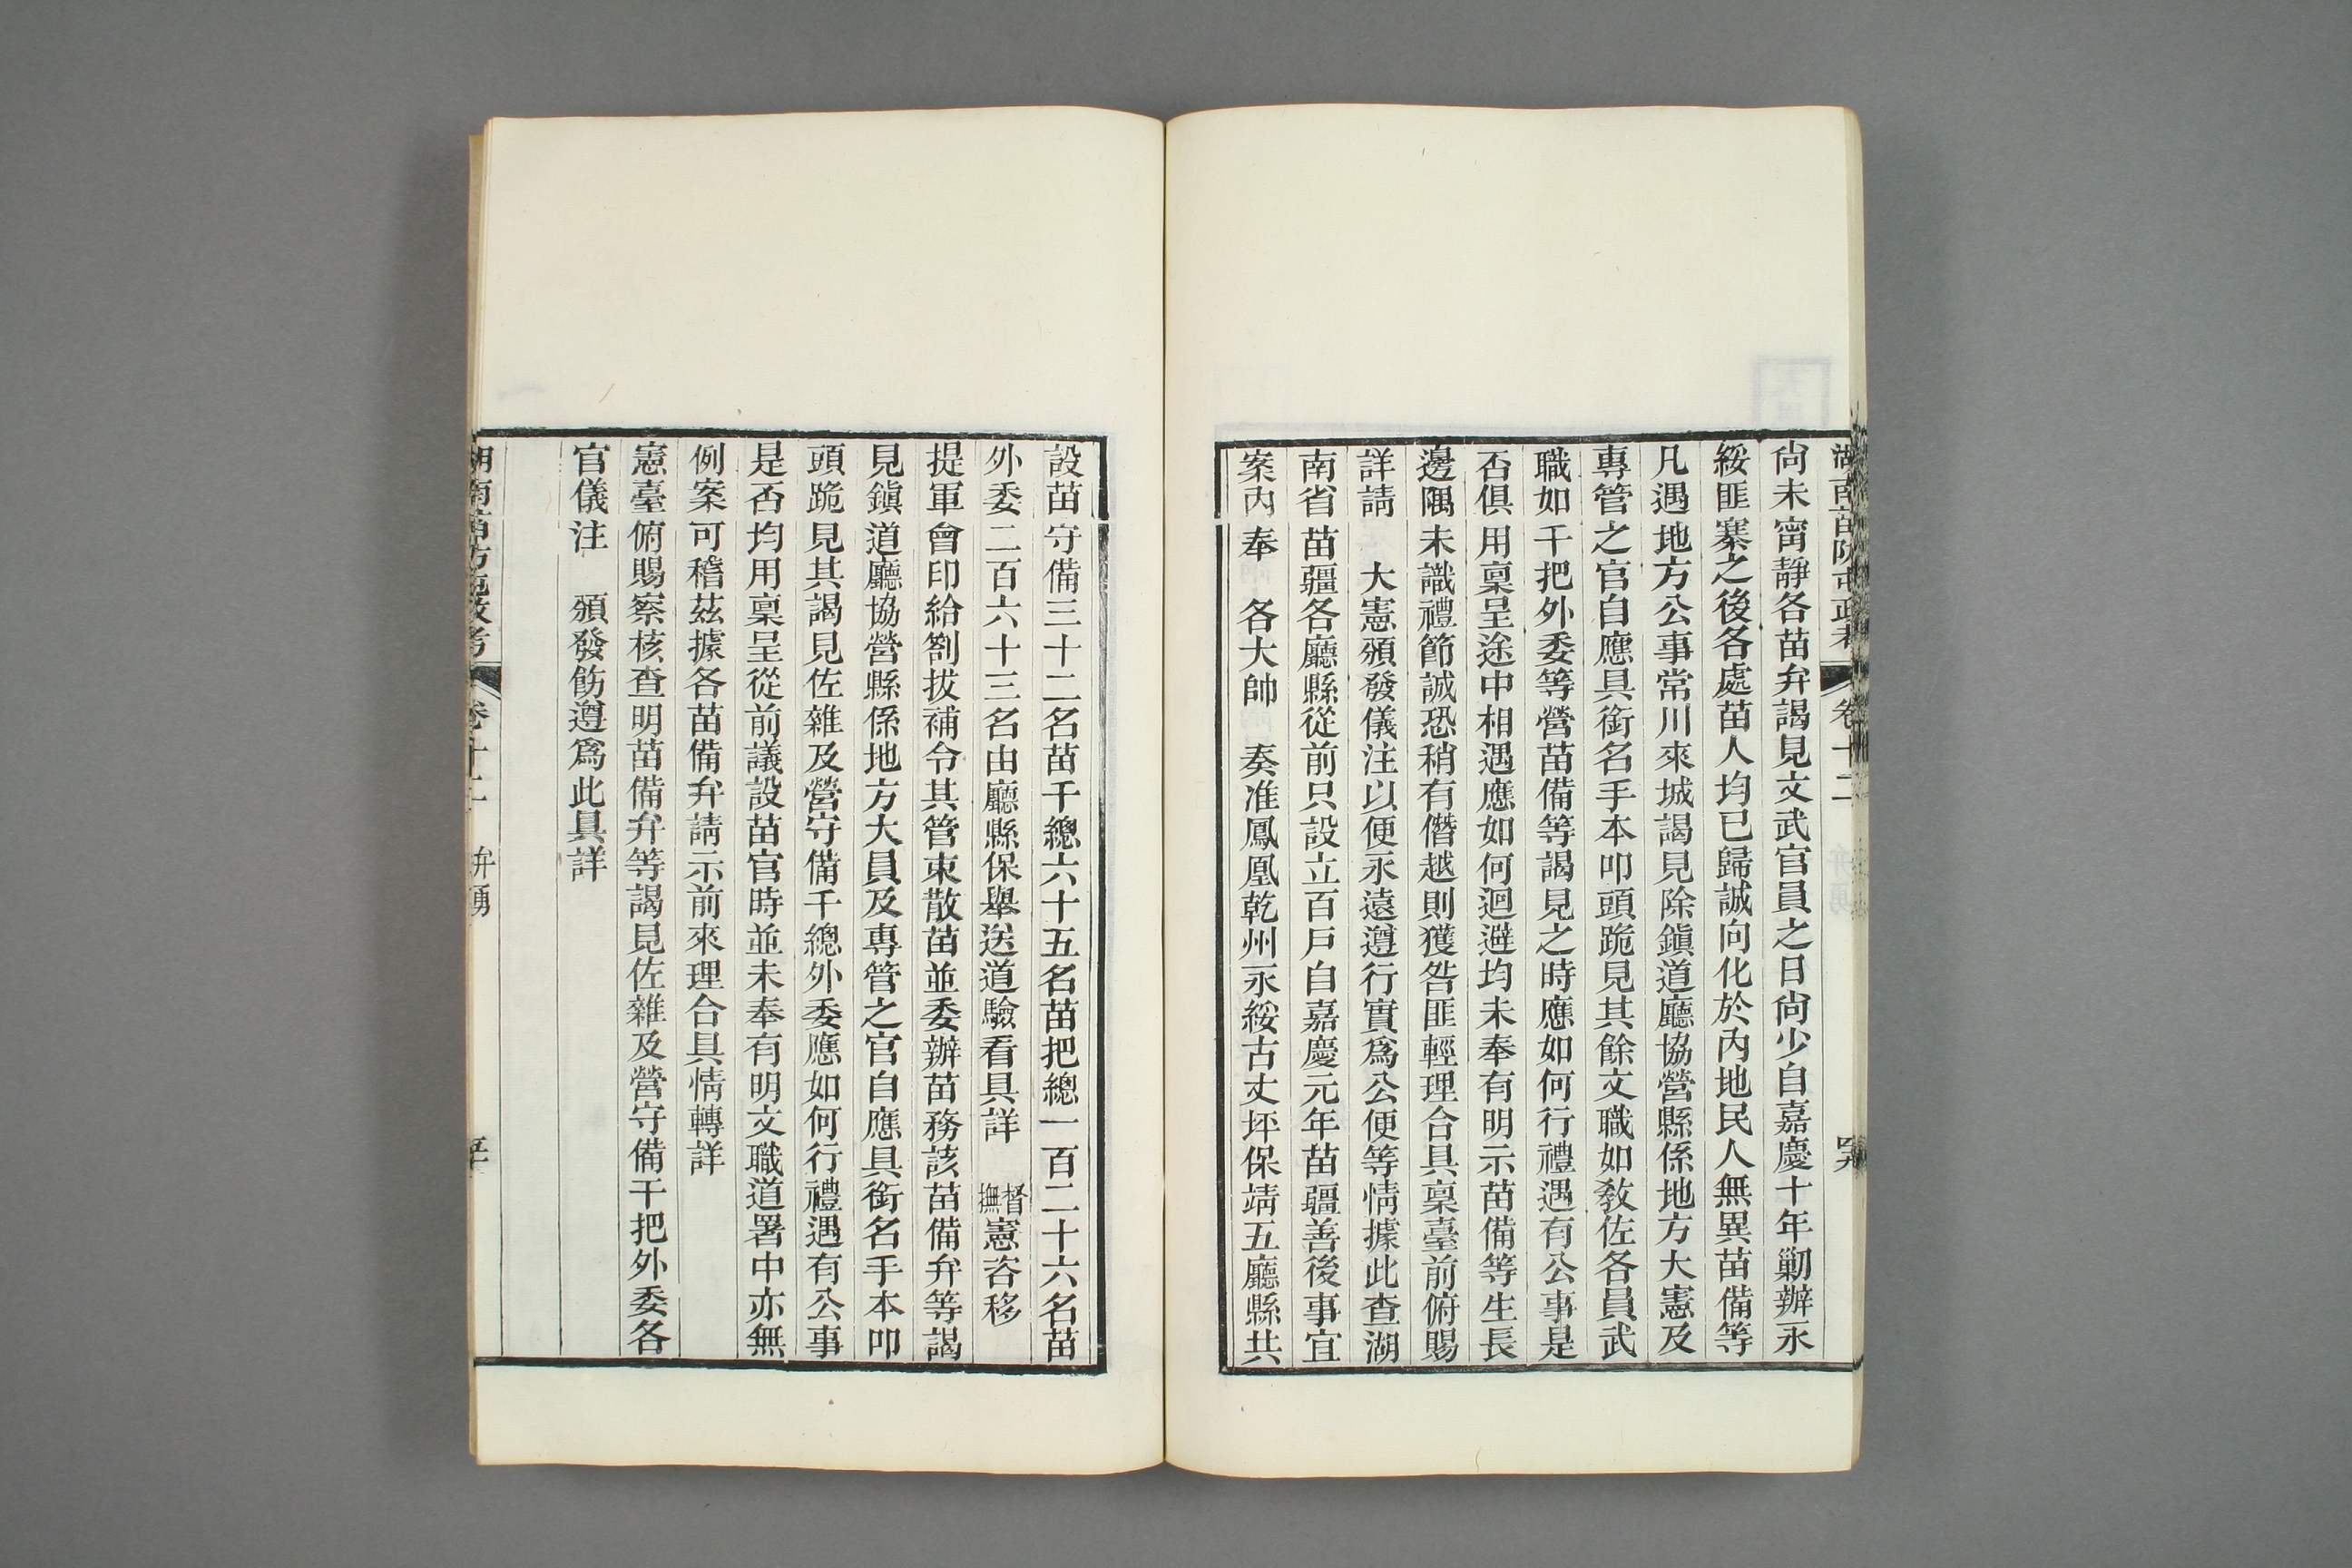 湖南苗防屯政考 卷十二
尚未甯靜各苗弁謁見文武官員之日尚少自嘉慶十年勦辦永
綏匪寨之後各處苗人均已歸誠向化於內地民人無異苗備等
凡遇地方公事常川來城謁見除鎭道廳協營縣係地方大憲及
專管之官自應具銜名手本叩頭跪見其餘文職如敎佐各員武
職如千把外委等營苗備等謁見之時應如何行禮遇有公事是
否俱用稟呈途中相遇應如何迴避均未奉有明示苗備等生長
邊隅未識禮節誠恐稍有僭越則獲咎匪輕理合具稟臺前俯賜
詳請 大憲頒發儀注以便永遠遵行實爲公便等情據此查湖
南省苗疆各廳縣從前只設立百戶自嘉慶元年苗疆善後事宜
案內奉 各大帥 奏准鳳凰乾州永綏古丈坪保靖五廳縣共
設苗守備三十二名苗千總六十五名苗把總一百二十六名苗
外委二百六十三名由廳縣保舉送道驗看具詳 督撫憲咨移
提軍會印給劄拔補令其管束散苗並委辦苗務該苗備弁等謁
見鎭道廳協營縣係地方大員及專管之官自應具銜名手本叩
頭跪見其謁見佐雜及營守備千總外委應如何行禮遇有公事
是否均用稟呈從前議設苗官時並未奉有明文職道署中亦無
例案可稽茲據各苗備弁請示前來理合具情轉詳
憲臺俯賜察核查明苗備弁等謁見佐雜及營守備千把外委各
官儀注 頒發飭遵爲此具詳
湖南苗防屯政考 卷十二 弁勇